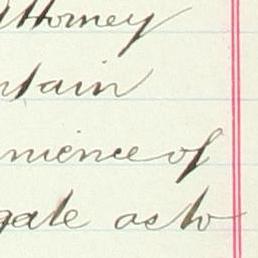 Attorney
ntain
nience of
gate as to